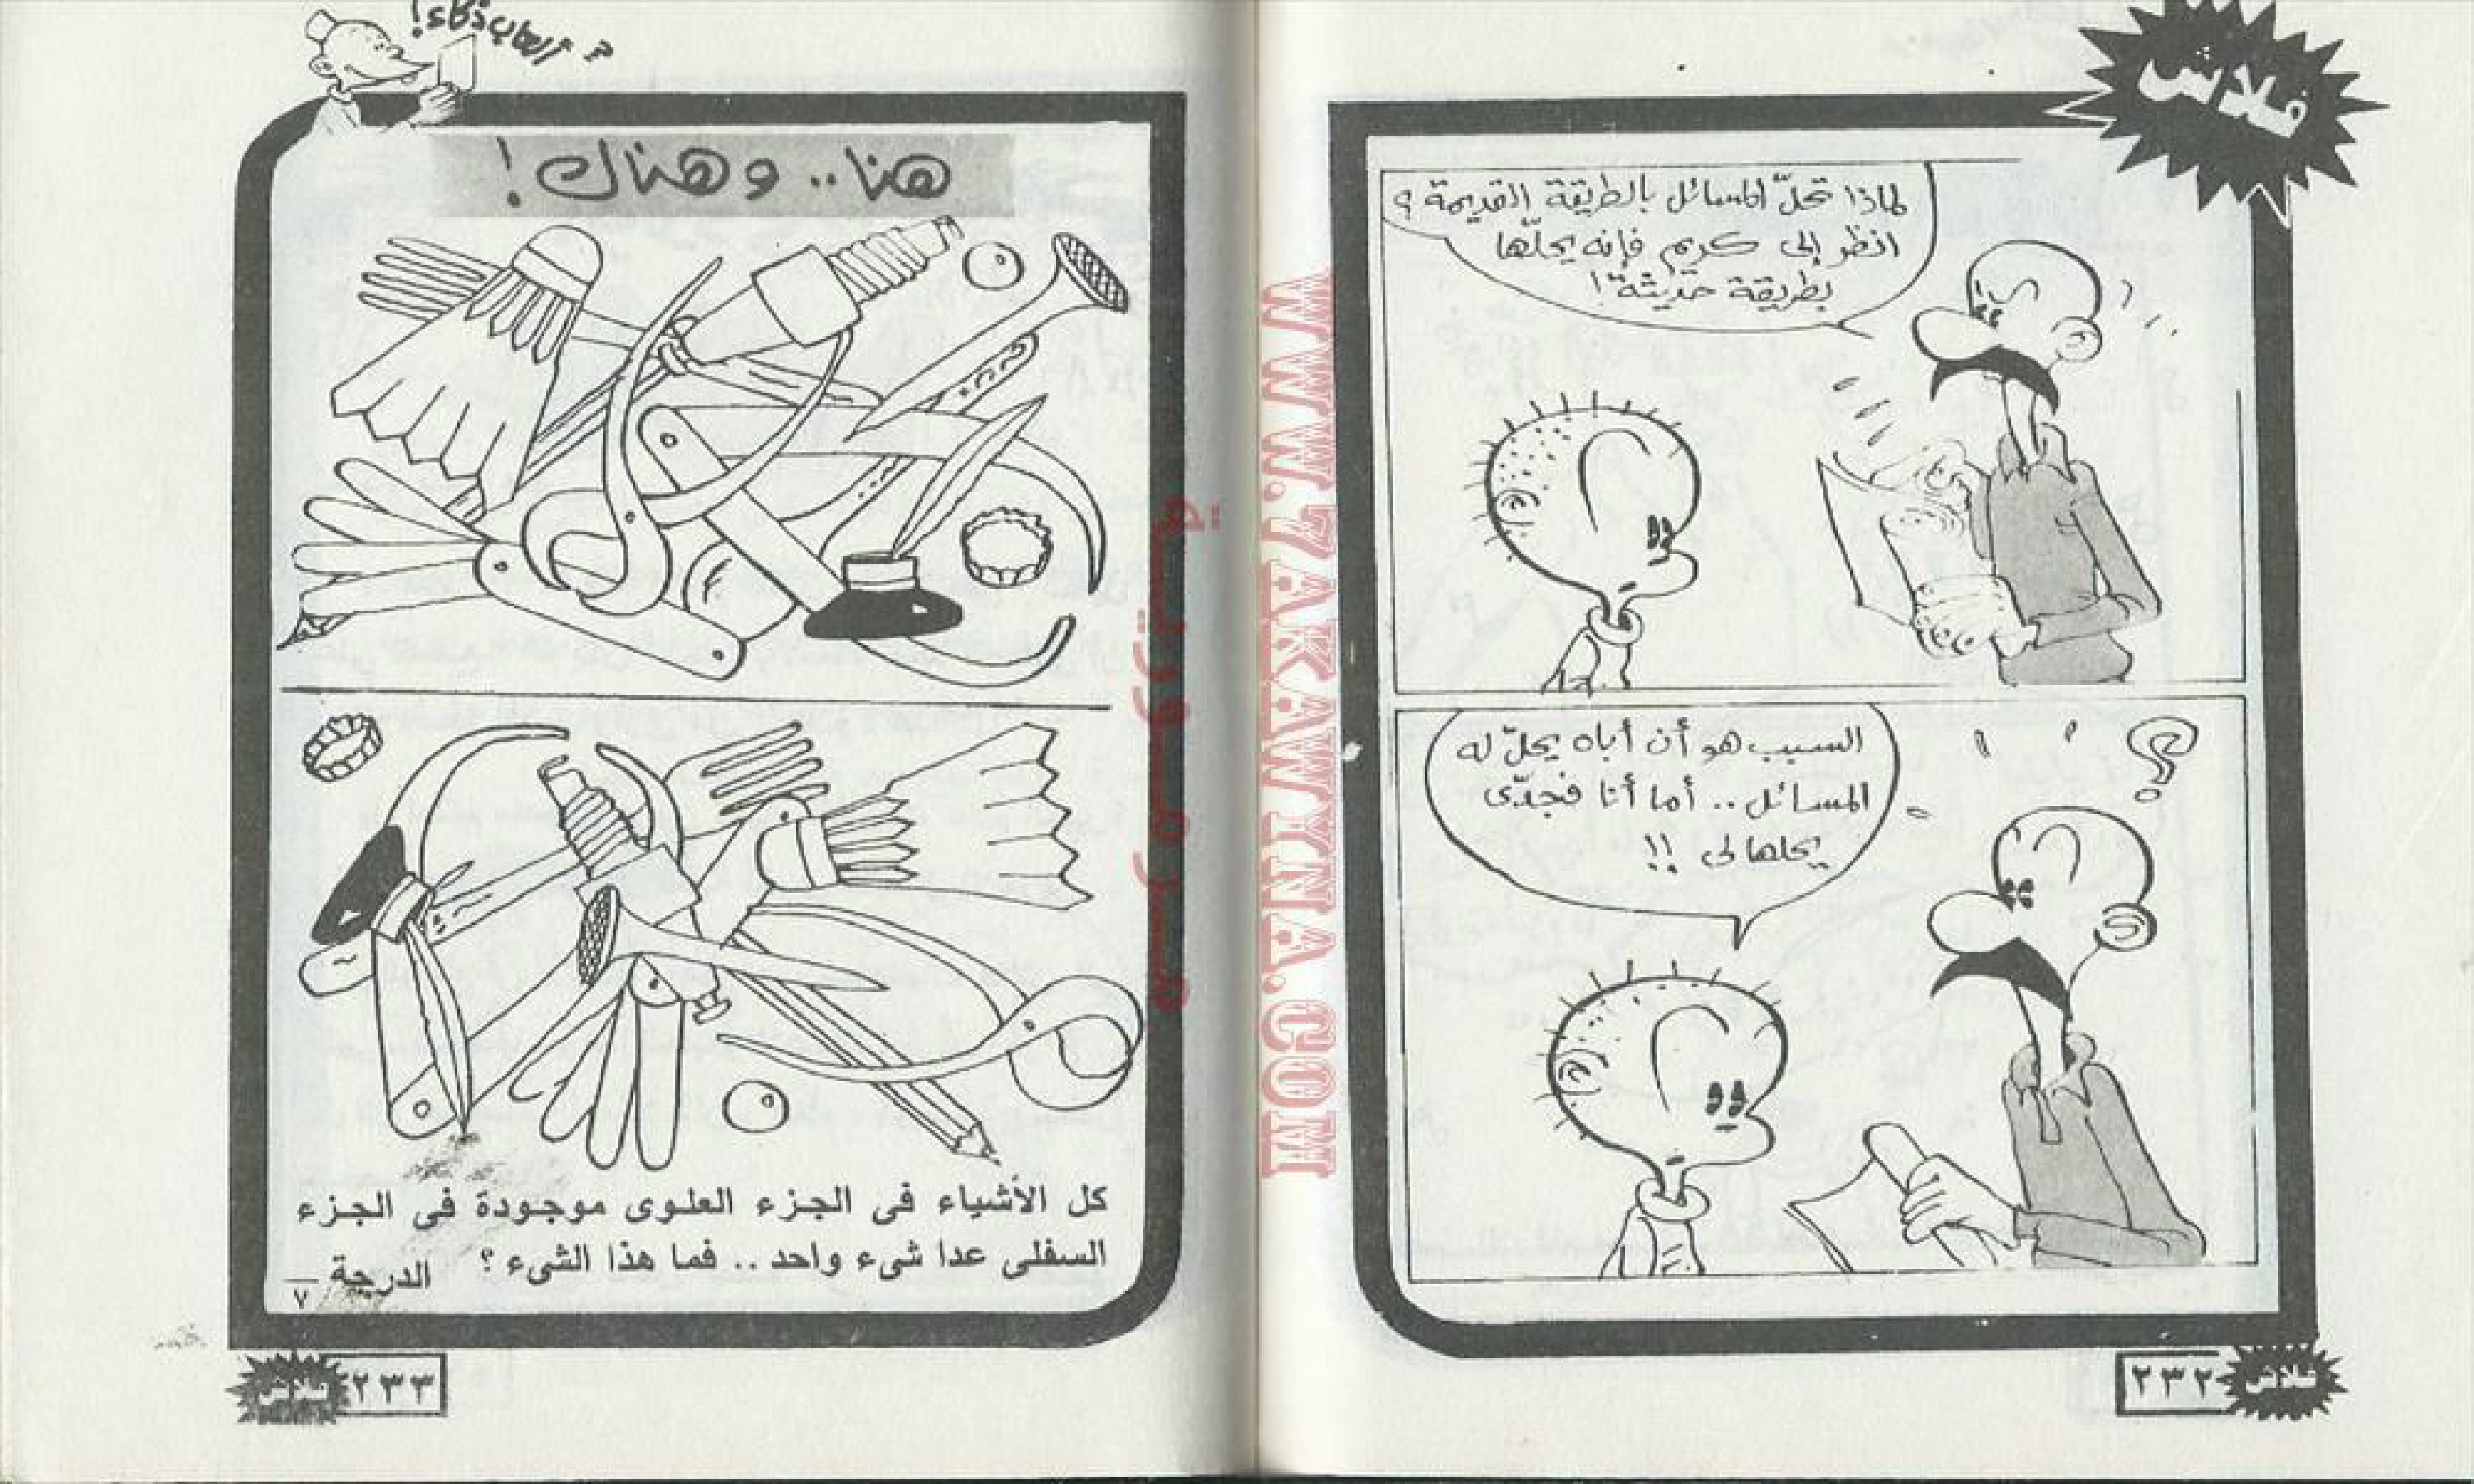 فلاش
لماذا تحلّ المسائل بالطريقة القديمة ؟
انظر إلى كريم فإنه يحلّها
بطريقة حديثة !
السبب هو أن أباه يحلّ له
المسائل .. أما أنا فجدّى
يحلها لى !!
٢٣٢
فلاش
WWW.ZAKAWTNA.COM
حصرية
ألعاب ذكاء !
هنا .. وهناك !
كل الأشياء فى الجزء العلوى موجودة فى الجزء
السفلى عدا شىء واحد .. فما هذا الشىء ؟ الدرجة —
٧
٢٣٣
فلاش